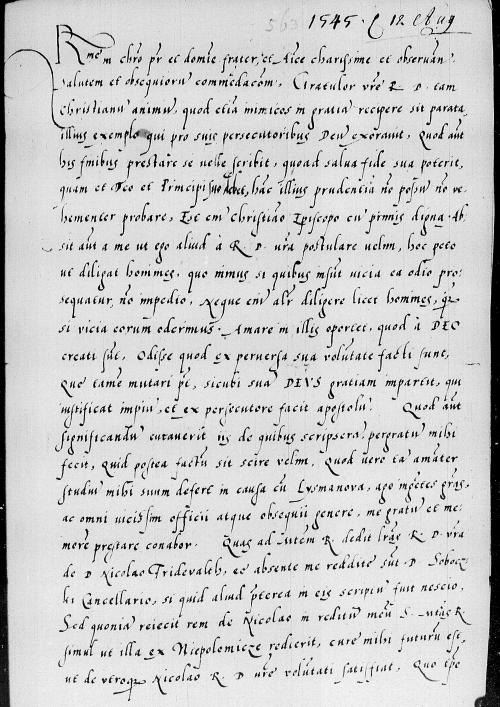 563 1545. C 12 Aug
Rme in chro pr et domine frater, et Amice charissime et observan.
salutem et obsequioru commendacom, Gratulor vre R. D. tam
Christianu animu, quod etia inimicos in gratia recipere sit parata,
illius exemplo qui pro suis persecutoribus Deu exoravit, Quod aut
his finibus prestare se velle scribit, quoad salva fide sua poterit,
quam et Deo et Principi suo debet, hac illius prudentia no possu no ve-
hementer probare, Est em Christiano Episcopo cu primis digna. Ab-
sit aut a me ut ego aliud à R. D. vra postulare velim, hoc peto
ut diligat homines, quo minus si quibus insut vicia ea odio pro-
sequatur, no impedio, Neque eni alr diligere licet homines, qr
si vicia eorum oderimus. Amare in illis oportet, quod à DEO
creati sut, Odisse quod ex perversa sua volutate facti sunt,
Que tame mutari pt, sicubi sua DEUS gratiam impartit, qui
iustificat impiu, et ex persecutore facit apostolu. Quod aut
significandu curaverit iis de quibus scripsera, pergratu mihi
fecit, quid postea factu sit scire velim, Quod vero ta amater
studiu mihi suum defert in causa cu Lysmanova, ago ingetes gras,
ac omni vicissim officii atque obsequii genere, me gratu et me-
more prestare conabor. Quas ad Mtem R. dedit lras R. D. vra
de D Nicolao Tridevalch, ee absente me reddite sut D. Sobocz-
ki Cancellario, si quid aliud preterea in eis scriptu fuit nescio,
Sed quonia reiecit rem de Nicolao in reditu meu S. Mtas R.
simul ut illa ex Niepolomicze redierit, cure mihi futuru est,
ut de utroq Nicolao R. D. vre volutati satisfiat, Quo tpe